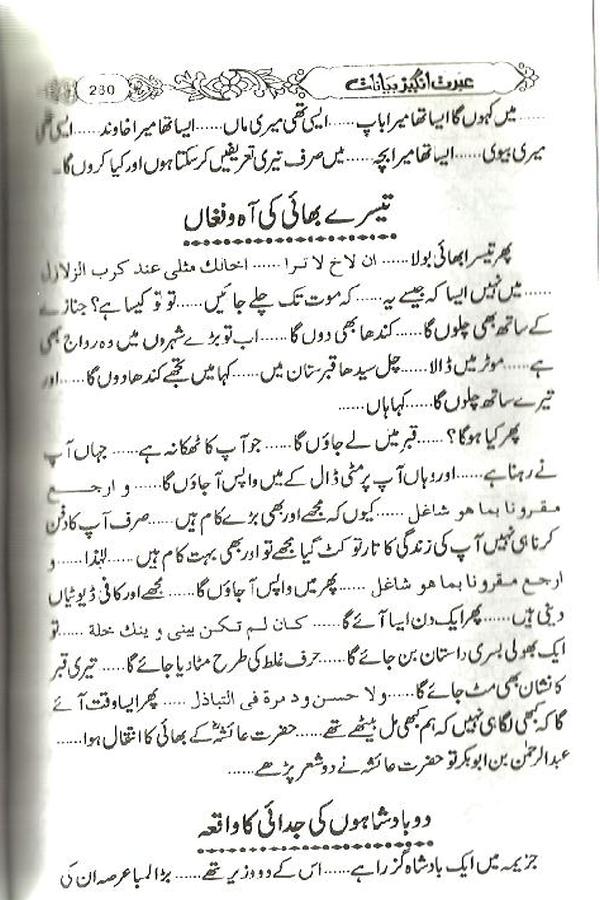 عبرت انگیز بیانات
230
...... میں کہوں گا ایسا تھا میرا باپ ...... ایسی تھی میری ماں ...... ایسا تھا میرا خاوند ...... ایسی تھی
میری بیوی ...... ایسا تھا میرا بچہ ...... میں صرف تیری تعریفیں کر سکتا ہوں اور کیا کروں گا۔
تیسرے بھائی کی آہ و فغاں
پھر تیسرا بھائی بولا ...... ان لاخ لا ترا ...... اخالك مثلی عند کرب الزلازل
...... میں نہیں ایسا کہ جیسے یہ ...... کہ موت تک چلے جائیں ...... تو تو کیسا ہے؟ جنازے
کے ساتھ بھی چلوں گا ...... کندھا بھی دوں گا ...... اب تو بڑے شہروں میں وہ رواج بھی
ہے ...... موٹر میں ڈالا ...... چل سیدھا قبرستان میں ...... کہا میں تجھے کندھا دوں گا ...... اور
تیرے ساتھ چلوں گا ...... کہا ہاں ......
پھر کیا ہوگا؟ ...... قبر میں لے جاؤں گا ...... جو آپ کا ٹھکانہ ہے ...... جہاں آپ
نے رہنا ہے ...... اور وہاں آپ پر مٹی ڈال کے میں واپس آ جاؤں گا ...... و ارجع
مقرونا بما هو شاغل ...... کیوں کہ مجھے اور بھی بڑے کام ہیں ...... صرف آپ کا دفن
کرنا ہی نہیں آپ کی زندگی کا تار تو کٹ گیا مجھے تو اور بھی بہت کام ہیں ...... لہٰذا ...... و
ارجع مقرونا بما هو شاغل ...... پھر میں واپس آ جاؤں گا ...... مجھے اور کافی ڈیوٹیاں
دینی ہیں ...... پھر ایک دن ایسا آئے گا ...... کان لم تکن بینی و ینك خلة ...... تو
ایک بھولی بسری داستان بن جائے گا ...... حرف غلط کی طرح مٹا دیا جائے گا ...... تیری قبر
کا نشان بھی مٹ جائے گا ...... ولا حسن ود مرة فی التباذل ...... پھر ایسا وقت آئے
گا کہ کبھی لگا ہی نہیں کہ ہم کبھی مل بیٹھے تھے ...... حضرت عائشہؓ کے بھائی کا انتقال ہوا ......
عبدالرحمٰن بن ابوبکر تو حضرت عائشہ نے دو شعر پڑھے ......
دو بادشاہوں کی جدائی کا واقعہ
جزیمہ میں ایک بادشاہ گزرا ہے ...... اس کے دو وزیر تھے ...... بڑا لمبا عرصہ ان کی